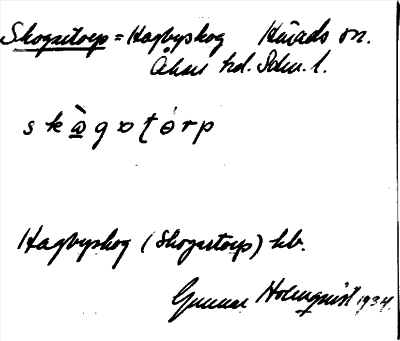 Skogstorp = Hagbyskog Härads sn.
Åkers hd. Sdm. l.
s k à̱ g ɒ ʈ ó r p
Hagbyskog (Skogstorp) hb.
Gunnar Holmquist 1934.